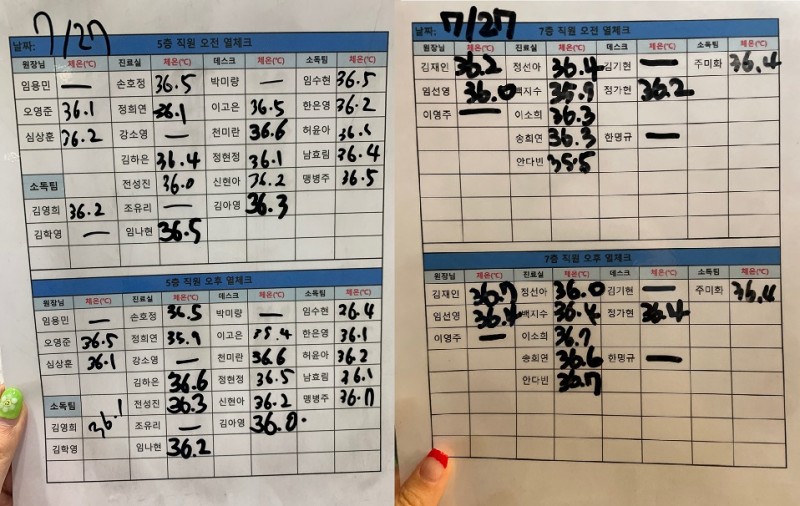 날짜: 7/27 5층 직원 오전 열체크
원장님 체온(℃) 진료실 체온(℃) 데스크 체온(℃) 소독팀 체온(℃)
임용민 — 손호정 36.5 박미량 — 임수현 36.5
오영준 36.1 정희연 36.1 이고은 36.5 한은영 36.2
심상훈 36.2 강소영 — 천미란 36.6 허윤아
김하은 36.4 정현정 36.1 남효림 36.4
소독팀 전성진 36.0 신현아 36.2 맹병주 36.5
김영희 36.2 조유리 — 김아영 36.3
김학영 — 임나현 36.5
5층 직원 오후 열체크
원장님 체온(℃) 진료실 체온(℃) 데스크 체온(℃) 소독팀 체온(℃)
임용민 — 손호정 36.5 박미량 — 임수현 26.4
오영준 36.5 정희연 35.9 이고은 35.4 한은영 36.1
심상훈 36.1 강소영 — 천미란 36.6 허윤아 36.2
김하은 36.6 정현정 36.5 남효림 36.1
소독팀 전성진 36.3 신현아 36.2 맹병주 36.7
김영희 36.1 조유리 — 김아영 36.0
김학영 임나현 36.2
날짜: 7/27 7층 직원 오전 열체크
원장님 체온(℃) 진료실 체온(℃) 데스크 체온(℃) 소독팀 체온(℃)
김재인 36.2 정선아 36.4 김기현 — 주미화 36.4
임선영 36.0 백지수 35.9 정가현 36.2
이영주 — 이소희 36.3
송희연 36.3 한명규 —
안다빈 35.5
7층 직원 오후 열체크
원장님 체온(℃) 진료실 체온(℃) 데스크 체온(℃) 소독팀 체온(℃)
김재인 36.7 정선아 36.0 김기현 — 주미화 36.4
임선영 36.4 백지수 36.4 정가현 36.4
이영주 — 이소희 36.7
송희연 36.6 한명규 —
안다빈 36.7